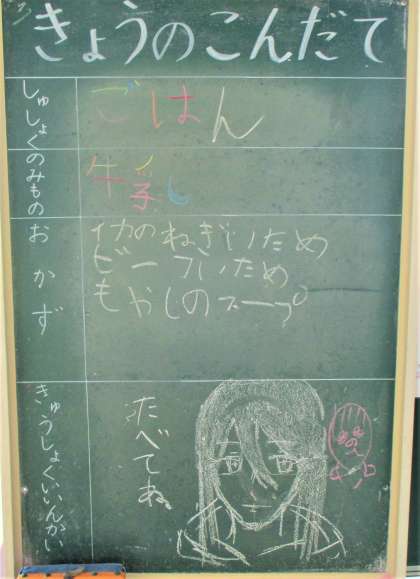 きょうのこんだて
しゅしょく
ごはん
のみもの
牛乳
おかず
イカのねぎいため
ビーフいため
もやしのスープ
きゅうしょくいいんかい
たべてね。